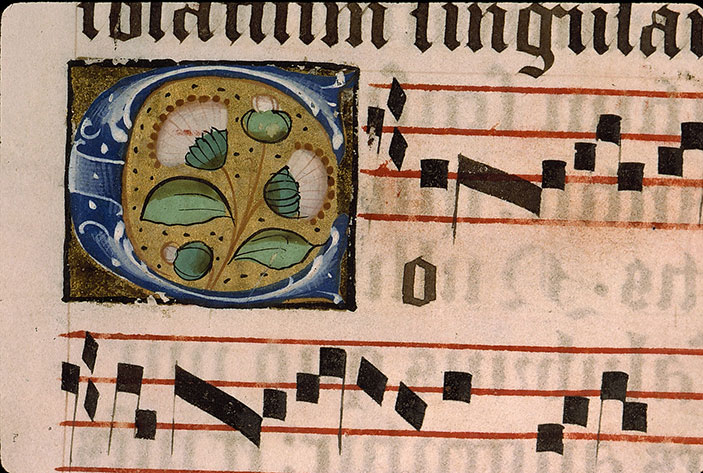 solatium singular
C o